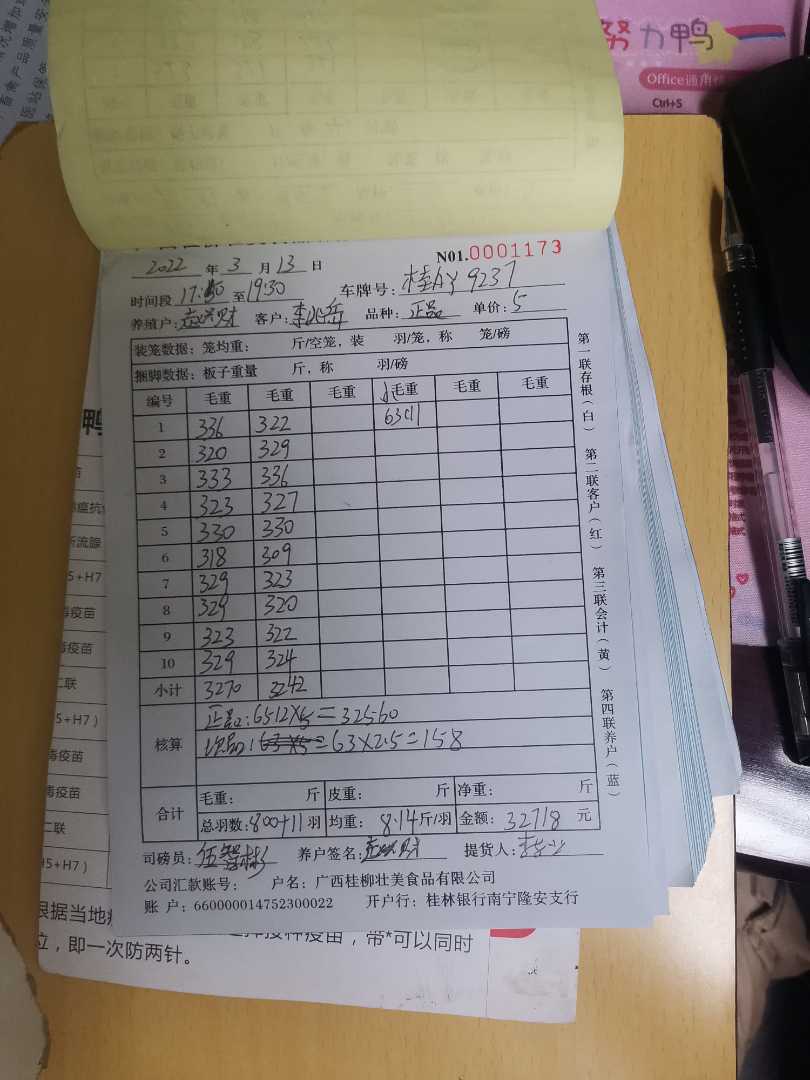 努力鸭
Office通用快
Ctrl+S
N01.0001173
2022 年 3 月 13 日
时间段 17:30 至 19:30 车牌号: 桂AY9237
养殖户: 客户: 李 品种: 正品 单价: 5
装笼数据: 笼均重: 斤/空笼, 装 羽/笼, 称 笼/磅
捆脚数据: 板子重量 斤, 称 羽/磅
编号 毛重 毛重 毛重 毛重 毛重 毛重
1 336 322 63(11)
2 320 329
3 333 336
4 323 327
5 330 330
6 318 309
7 329 323
8 329 320
9 323 322
10 329 324
小计 3270 3242
核算
正品:6512×5=32560
次品:63×5=63×2.5=158
合计
毛重: 斤 皮重: 斤 净重: 斤
总羽数:800+11 羽 均重: 8.14 斤/羽 金额: 32718 元
司磅员: 养户签名: 提货人:
公司汇款账号: 户名: 广西桂柳壮美食品有限公司
账 户: 660000014752300022 开户行: 桂林银行南宁隆安支行
第一联存根(白) 第二联客户(红) 第三联会计(黄) 第四联养户(蓝)
鸭
5+H7
毒疫苗
疫苗
二联
5+H7)
毒疫苗
毒疫苗
二联
H5+H7)
根据当地
接种疫苗, 带*可以同时
位, 即一次防两针。